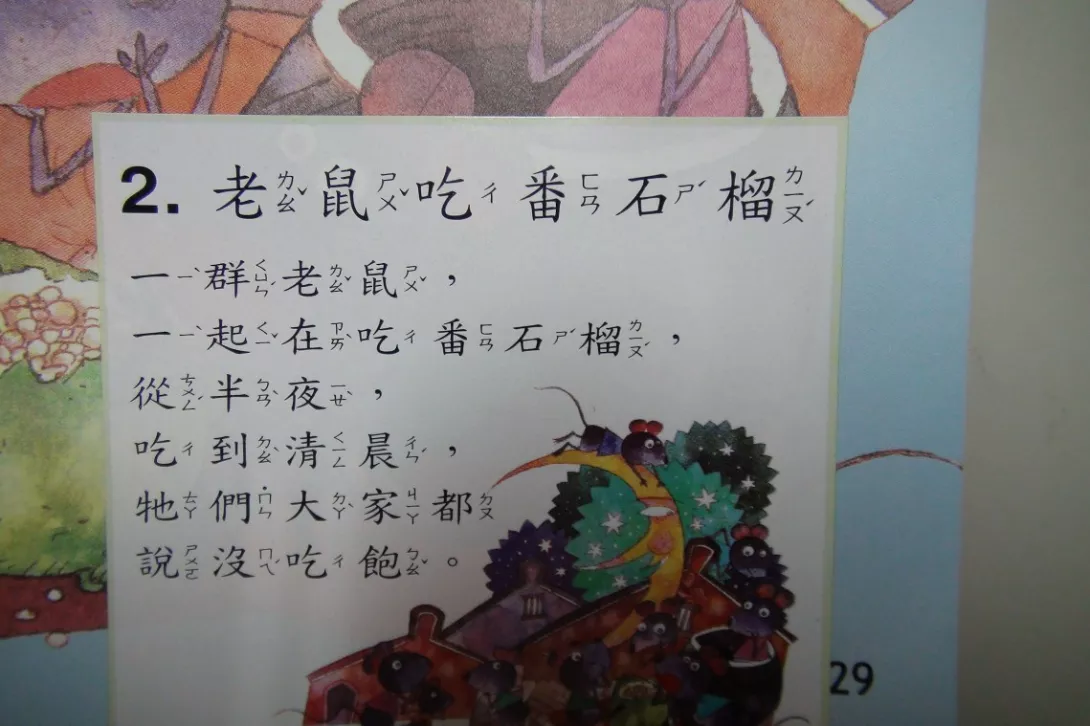 2. 老ㄌㄠˇ鼠ㄕㄨˇ吃ㄔ番ㄈㄢ石ㄕˊ榴ㄌㄧㄡˊ
一ㄧˋ群ㄑㄩㄣˊ老ㄌㄠˇ鼠ㄕㄨˇ，
一ㄧˋ起ㄑㄧˇ在ㄗㄞˋ吃ㄔ番ㄈㄢ石ㄕˊ榴ㄌㄧㄡˊ，
從ㄘㄨㄥˊ半ㄅㄢˋ夜ㄧㄝˋ，
吃ㄔ到ㄉㄠˋ清ㄑㄧㄥ晨ㄔㄣˊ，
牠ㄊㄚ們ㄇㄣ˙大ㄉㄚˋ家ㄐㄧㄚ都ㄉㄡ
說ㄕㄨㄛ沒ㄇㄟˊ吃ㄔ飽ㄅㄠˇ。
29